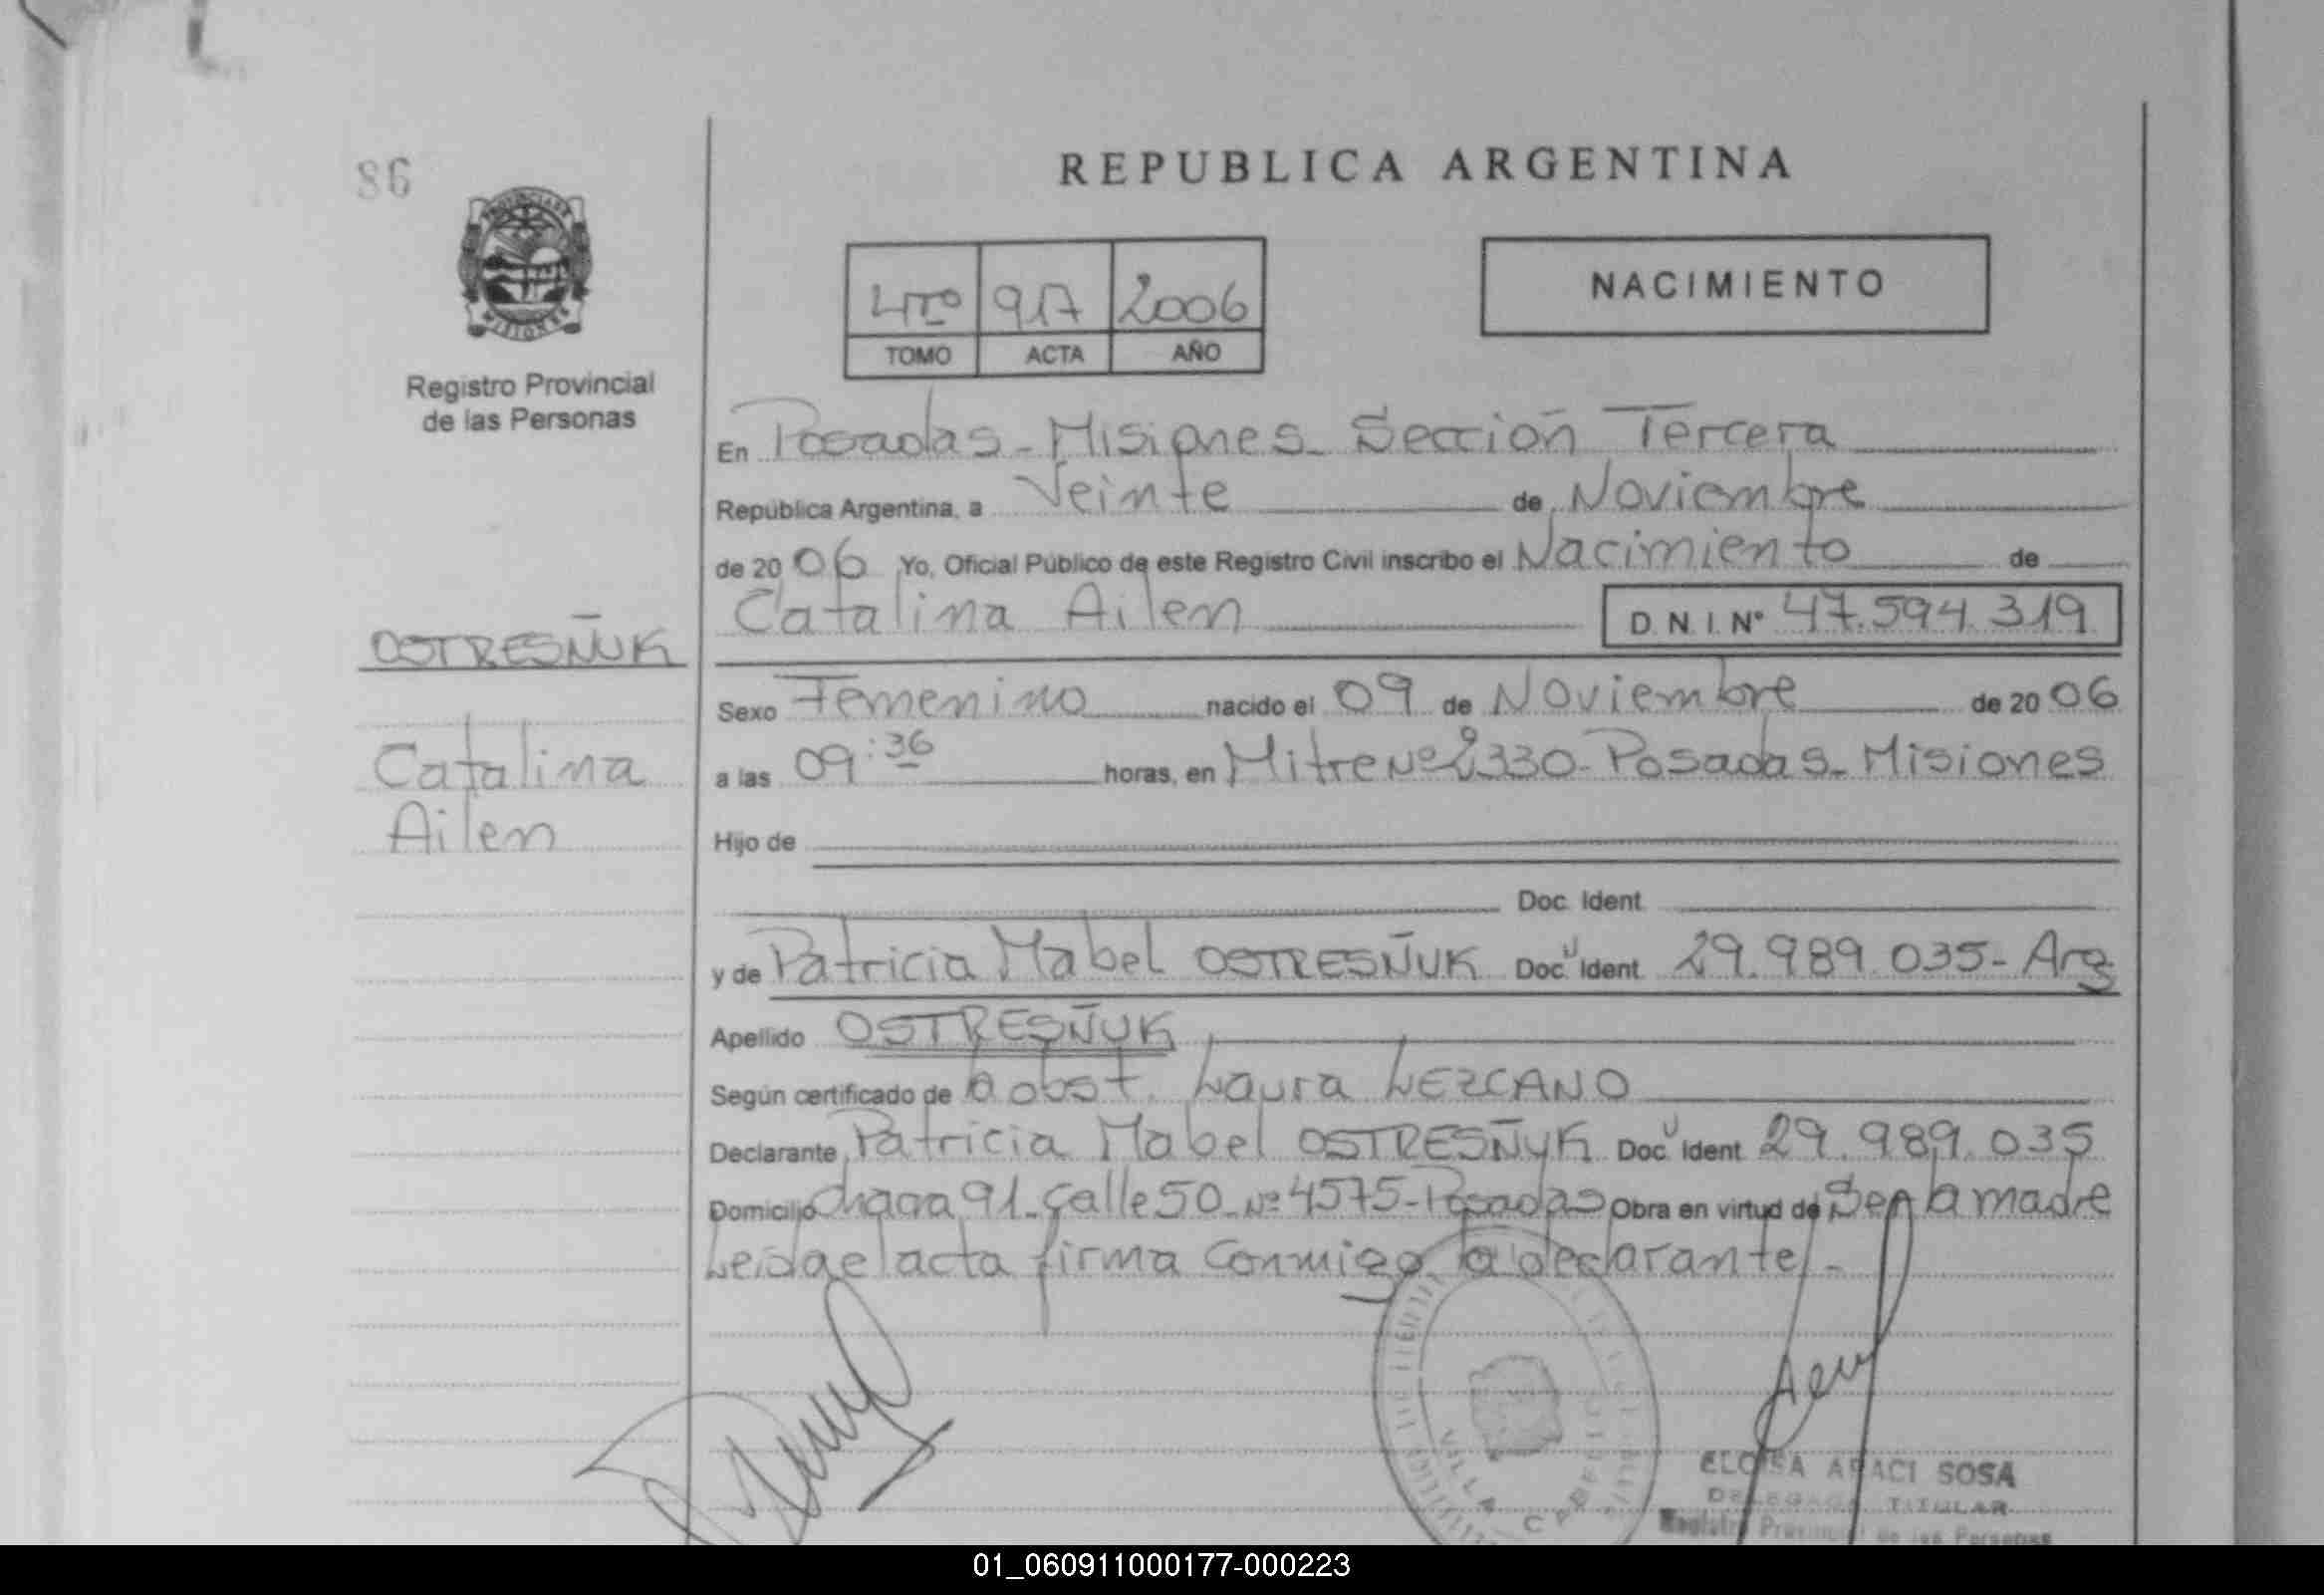 86
REPUBLICA ARGENTINA
PROVINCIA DE
MISIONES
Registro Provincial
de las Personas
4Tº 917 2006
TOMO ACTA AÑO
NACIMIENTO
En Posadas - Misiones - Sección Tercera
República Argentina, a Veinte de Noviembre
de 2006 Yo, Oficial Público de este Registro Civil inscribo el Nacimiento de
Catalina Ailen D.N.I. Nº 47.594.319
OSTRESÑUK
Catalina
Ailen
Sexo Femenino nacido el 09 de Noviembre de 2006
a las 09:36 horas, en Mitre Nº 2330 - Posadas - Misiones
Hijo de
Doc. Ident.
y de Patricia Mabel OSTRESÑUK Doc. Ident. 29.989.035 - Arg
Apellido OSTRESÑUK
Según certificado de obst. Laura LEZCANO
Declarante Patricia Mabel OSTRESÑUK Doc. Ident. 29.989.035
Domicilio Chacra 91 - Calle 50 - Nº 4575 - Posadas Obra en virtud de Ser la madre
Leida el acta firma Conmigo la declarante. -
VILLA CABELLO
ELOISA ARACI SOSA
DELEGADA TITULAR
Registro Provincial de las Personas
01_060911000177-000223